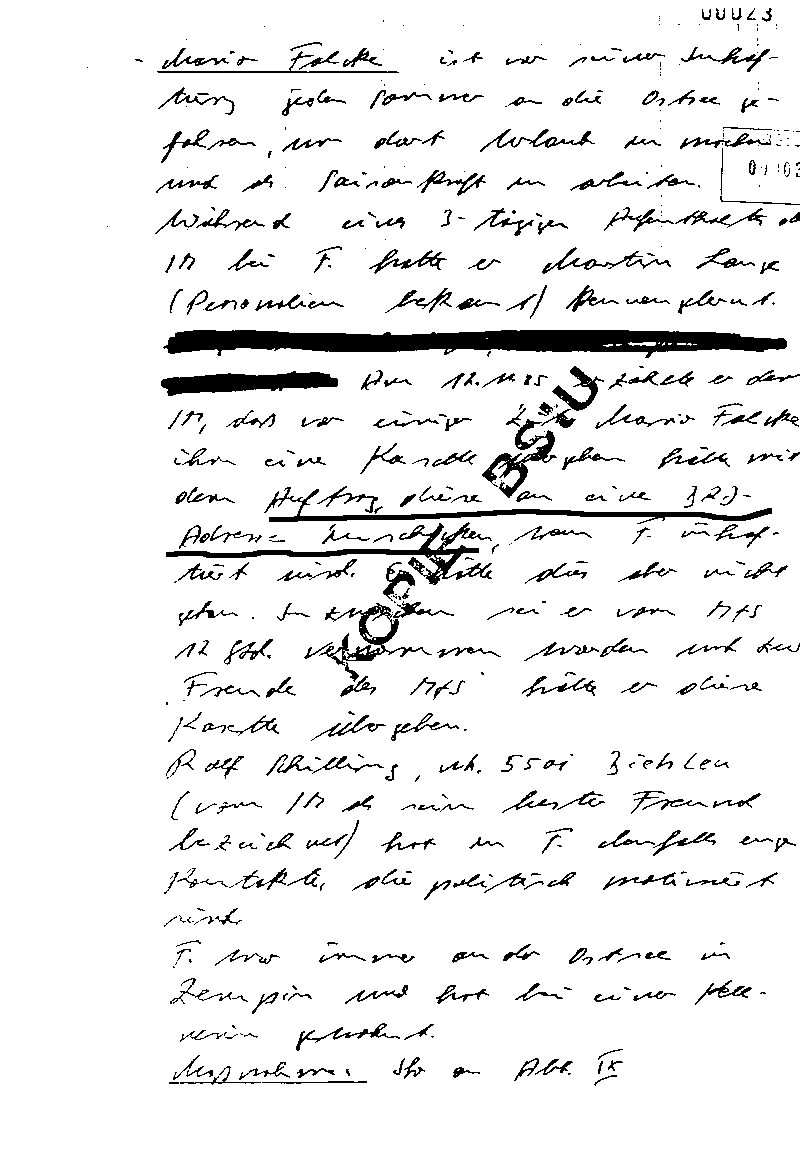 00023
- Mario Falcke ist vor seiner Inhaf-
tierung jeden Sommer an die Ostsee ge-
fahren, um dort Urlaub zu machen
und als Saisonkraft zu arbeiten.
Während eines 3-tägigen Aufenthaltes des
IM bei F. hatte er Martin Lange
(Personalien bekannt) kennengelernt.
Am 12.11.85 erzählte er dem
IM, daß vor einiger Zeit Mario Falcke
ihm eine Kasette übergeben hätte mit
dem Auftrag, diese an eine
Adresse zu schicken, wenn F. inhaf-
tiert wird. Er hätte dies aber nicht
getan. Inzwischen sei er vom MfS
12 Std. vernommen worden und zur
Freude des MfS hätte er diese
Kasette übergeben.
Ralf Schilling, wh. 5501
(vom IM als sein bester Freund
bezeichnet) hat zu F. ebenfalls enge
Kontakte, die politisch motiviert
sind.
F. war immer an der Ostsee in
Zempin und hat bei einer Kell-
nerin gewohnt.
Maßnahme: an Abt. IX
KOPIE BStU